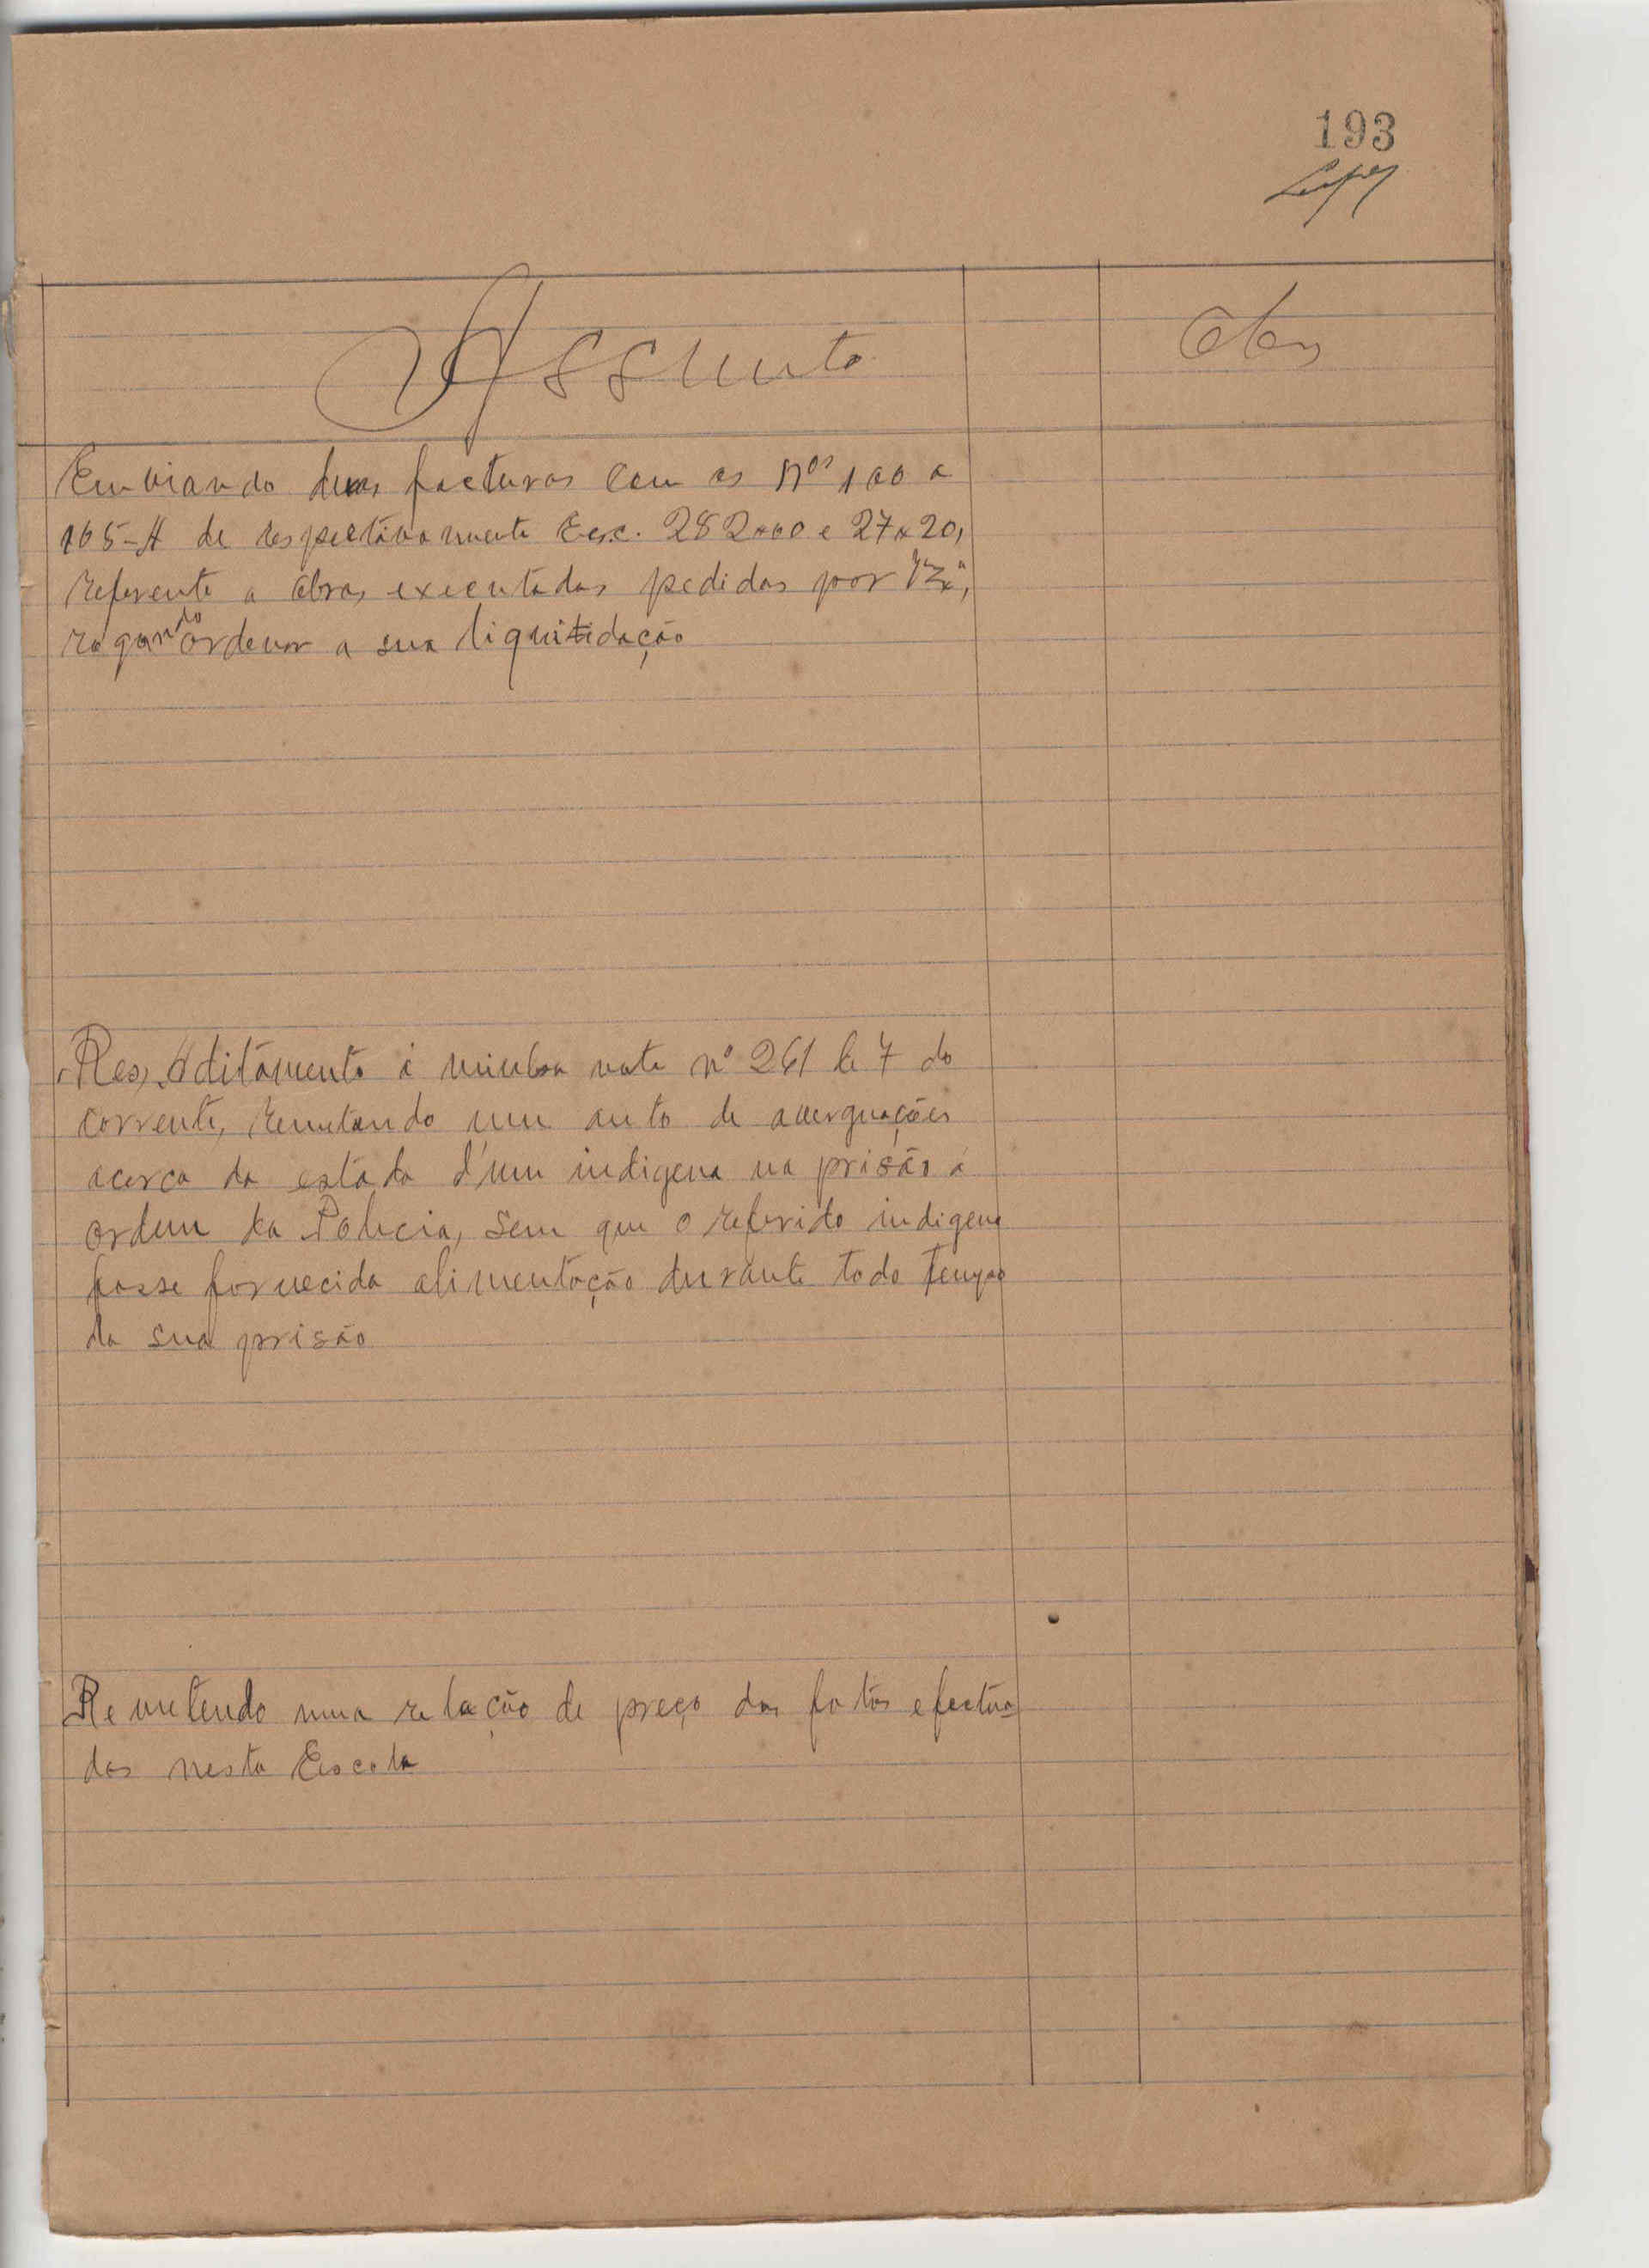 193
Lopes
Assunto
Obs
Enviando duas facturas com os Nos 100 a
105-A de respectivamente Esc. 282x00 e 27x20,
referente a obras executadas pedidas por V. Exª,
rogando ordenar a sua liquitidação
Res, Aditamento á minha nota nº 261 de 7 do
corrente, remetendo um auto de averguações
acerca da estada d'um indigena na prisão á
ordem da Policia, sem que o referido indigena
fosse fornecida alimentação durante todo tempo
da sua prisão
Remetendo uma relação de preço dos fatos efectua
dos nesta Escola